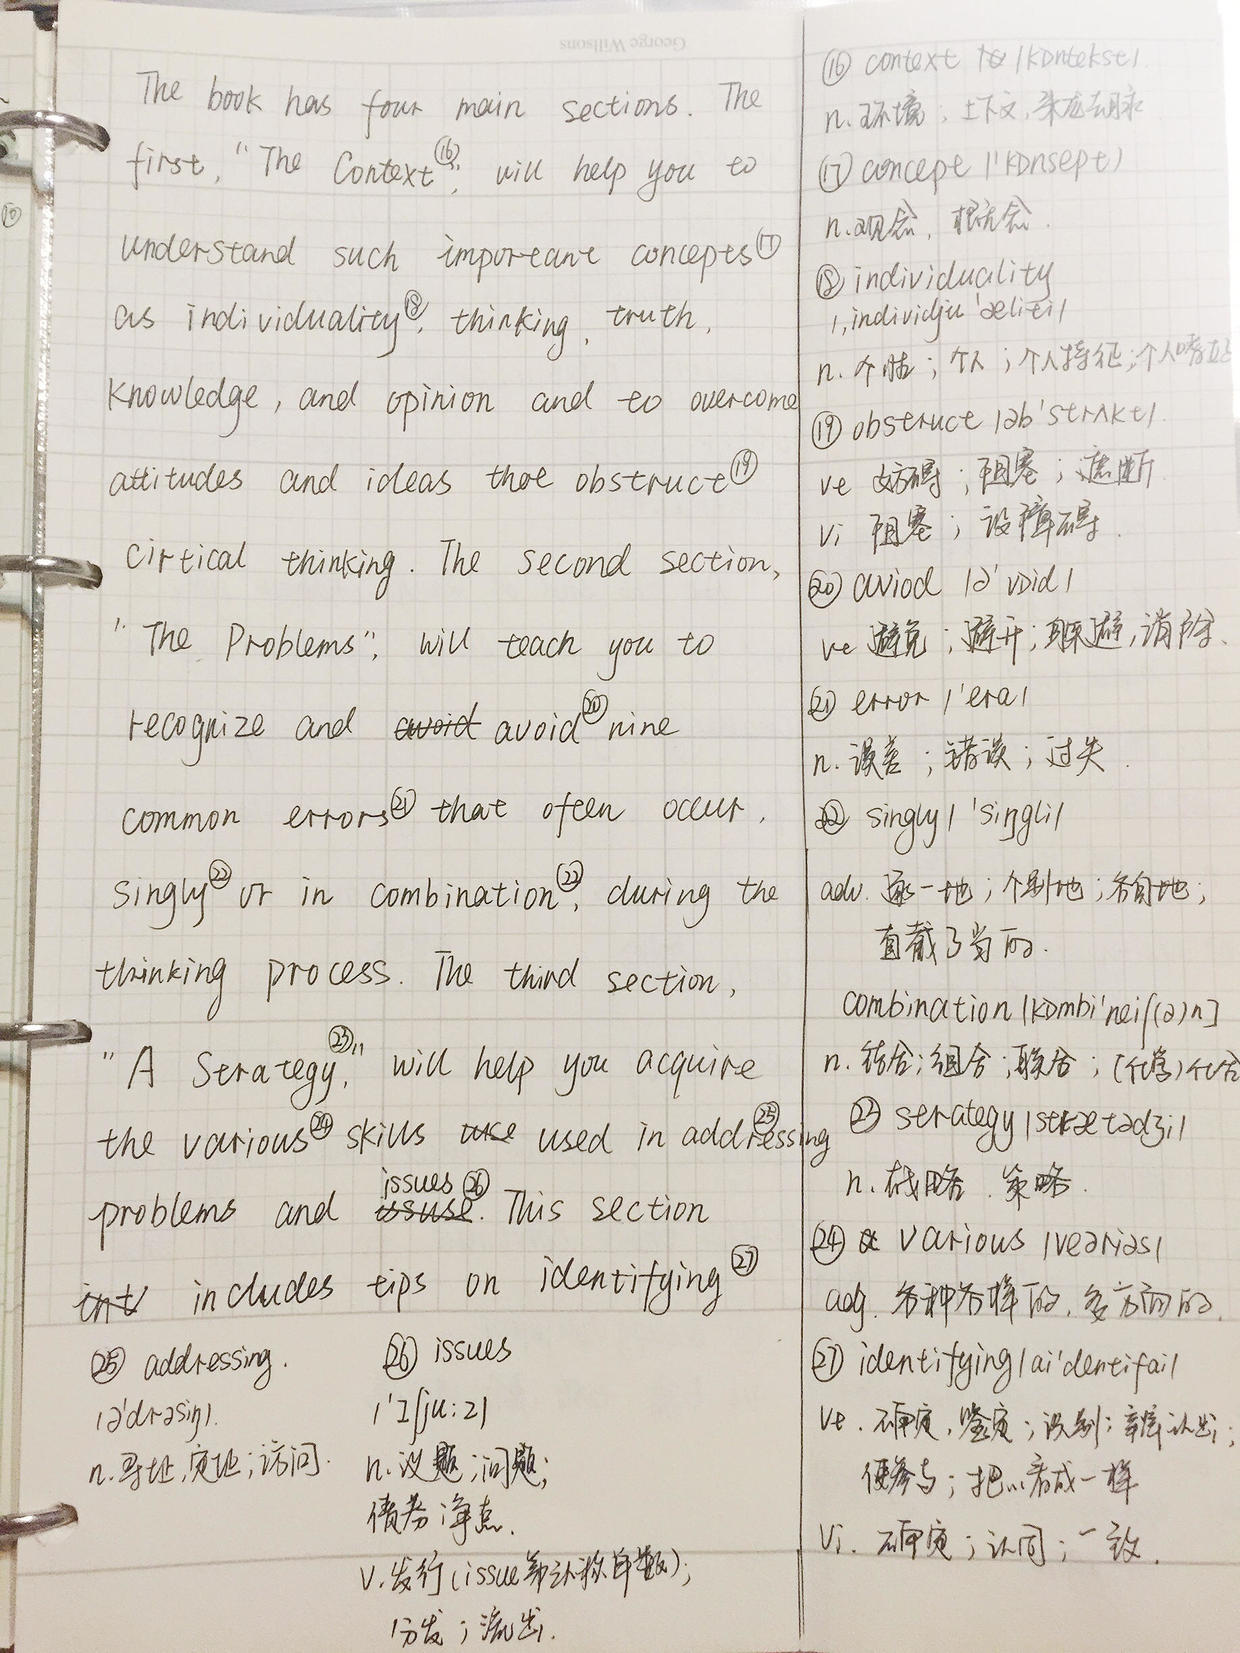 George Willsons
The book has four main sections. The
first, "The Context⑯", will help you to
understand such important concepts⑰
as individuality⑱, thinking, truth,
knowledge, and opinion and to overcome
attitudes and ideas that obstruct⑲
cirtical thinking. The second section,
"The Problems", will teach you to
recognize and avoid⑳ nine
common errors㉑ that often occur,
singly㉒ or in combination㉒, during the
thinking process. The third section,
"A Strategy㉓," will help you acquire
the various㉔ skills used in addressing㉕
problems and issues㉖. This section
includes tips on identifying㉗
㉕ addressing.
|ə'drəsiŋ|.
n.寻址,定址;访问.
㉖ issues
|'Iʃju:z|
n.议题;问题;
债务净点.
v.发行(issue第三人称单数);
分发;流出.
⑯ context |kɒntekst|
n.环境;上下文,来龙去脉
⑰ concept |'kɒnsept|
n.观念,概念.
⑱ individuality
|,individju'æliti|
n.个性;个人;个人特征;个人嗜好
⑲ obstruct |əb'strʌkt|.
vt 妨碍;阻塞;遮断.
vi 阻塞;设障碍.
⑳ aviod |ə'vɒid|
vt 避免;避开;躲避,消除.
㉑ error |'erə|
n.误差;错误;过失.
㉒ singly|'siŋgli|
adv.逐一地;个别地;各自地;
直截了当的.
combination |kɒmbi'neiʃ(ə)n]
n.结合;组合;联合;(化学)化合
㉓ strategy|strætədʒi|
n.战略.策略.
㉔ various |veəriəs|
adj.各种各样的.多方面的.
㉗ identifying|ai'dentifai|
vt.确定,鉴定;识别;辨认出;
使参与;把…看成一样
vi.确定;认同;一致.